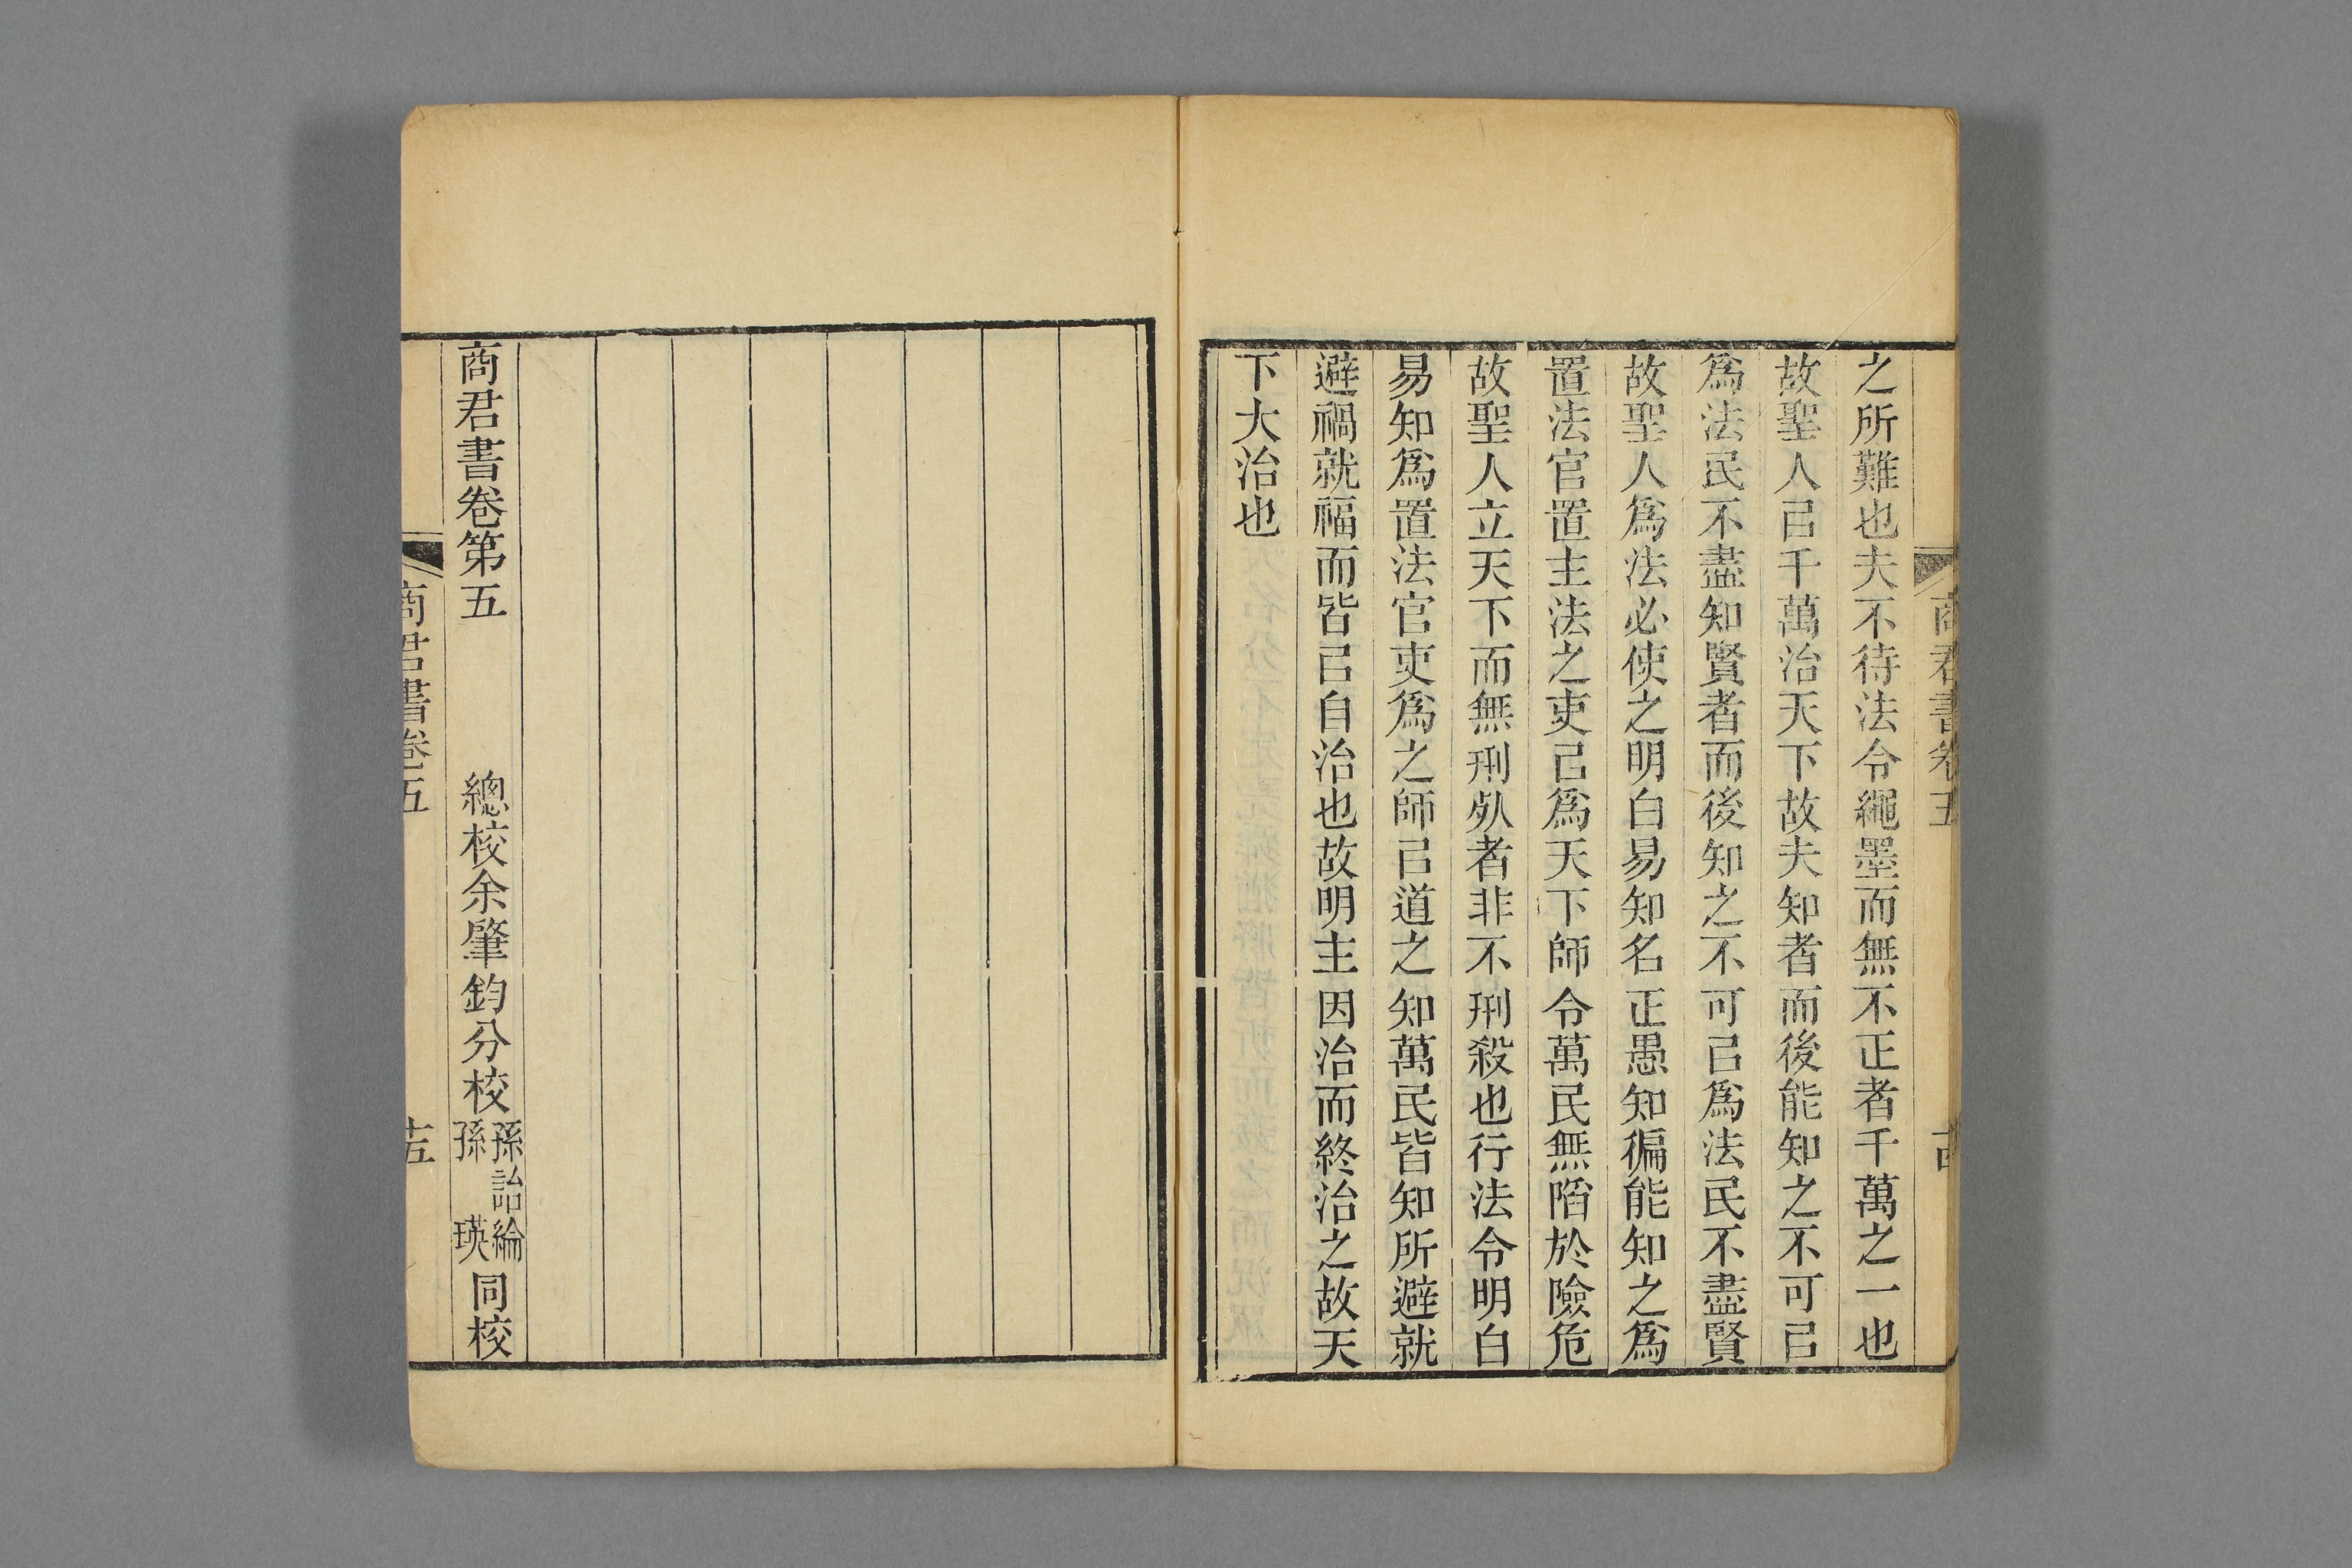 之所難也夫不待法令繩墨而無不正者千萬之一也
故聖人㠯千萬治天下故夫知者而後能知之不可㠯
爲法民不盡知賢者而後知之不可㠯爲法民不盡賢
故聖人爲法必使之明白易知名正愚知徧能知之爲
置法官置主法之吏㠯爲天下師令萬民無陷於險危
故聖人立天下而無刑𣦸者非不刑殺也行法令明白
易知爲置法官吏爲之師㠯道之知萬民皆知所避就
避禍就福而皆㠯自治也故明主因治而終治之故天
下大治也
商君書卷五
商君書卷第五
總校余肇鈞分校孫詒綸孫瑛同校
商君書卷五
十五